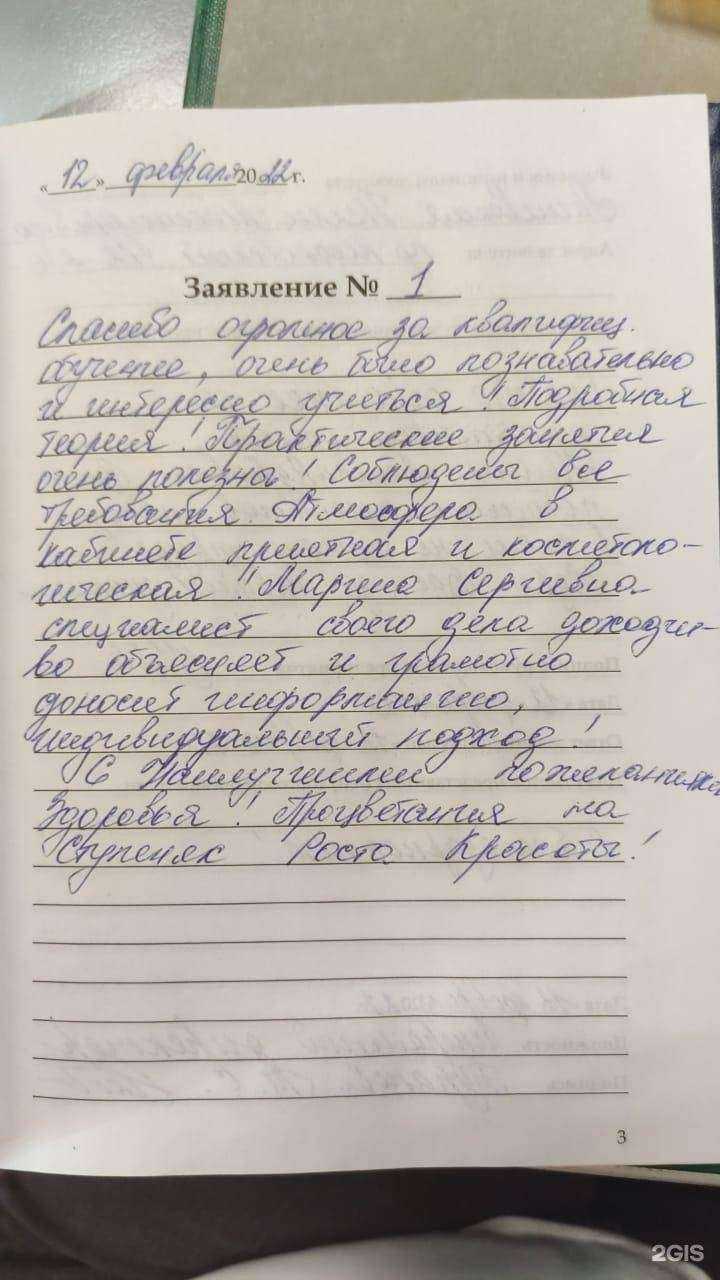 «12» февраля 2022 г.
Заявление № 1
Спасибо огромное за квалифиц.
обучение, очень было познавательно
и интересно учиться! Подробная
теория! Практические занятия
очень полезны! Соблюдены все
требования. Атмосфера в
кабинете приятная и косметоло-
гическая! Марина Сергевна
специалист своего дела доходчи-
во объясняет и грамотно
доносит информацию,
индивидуальный подход!
С Наилучшими пожеланиями
Здоровья! Процветания на
Ступенях Роста Красоты!
3
2GIS